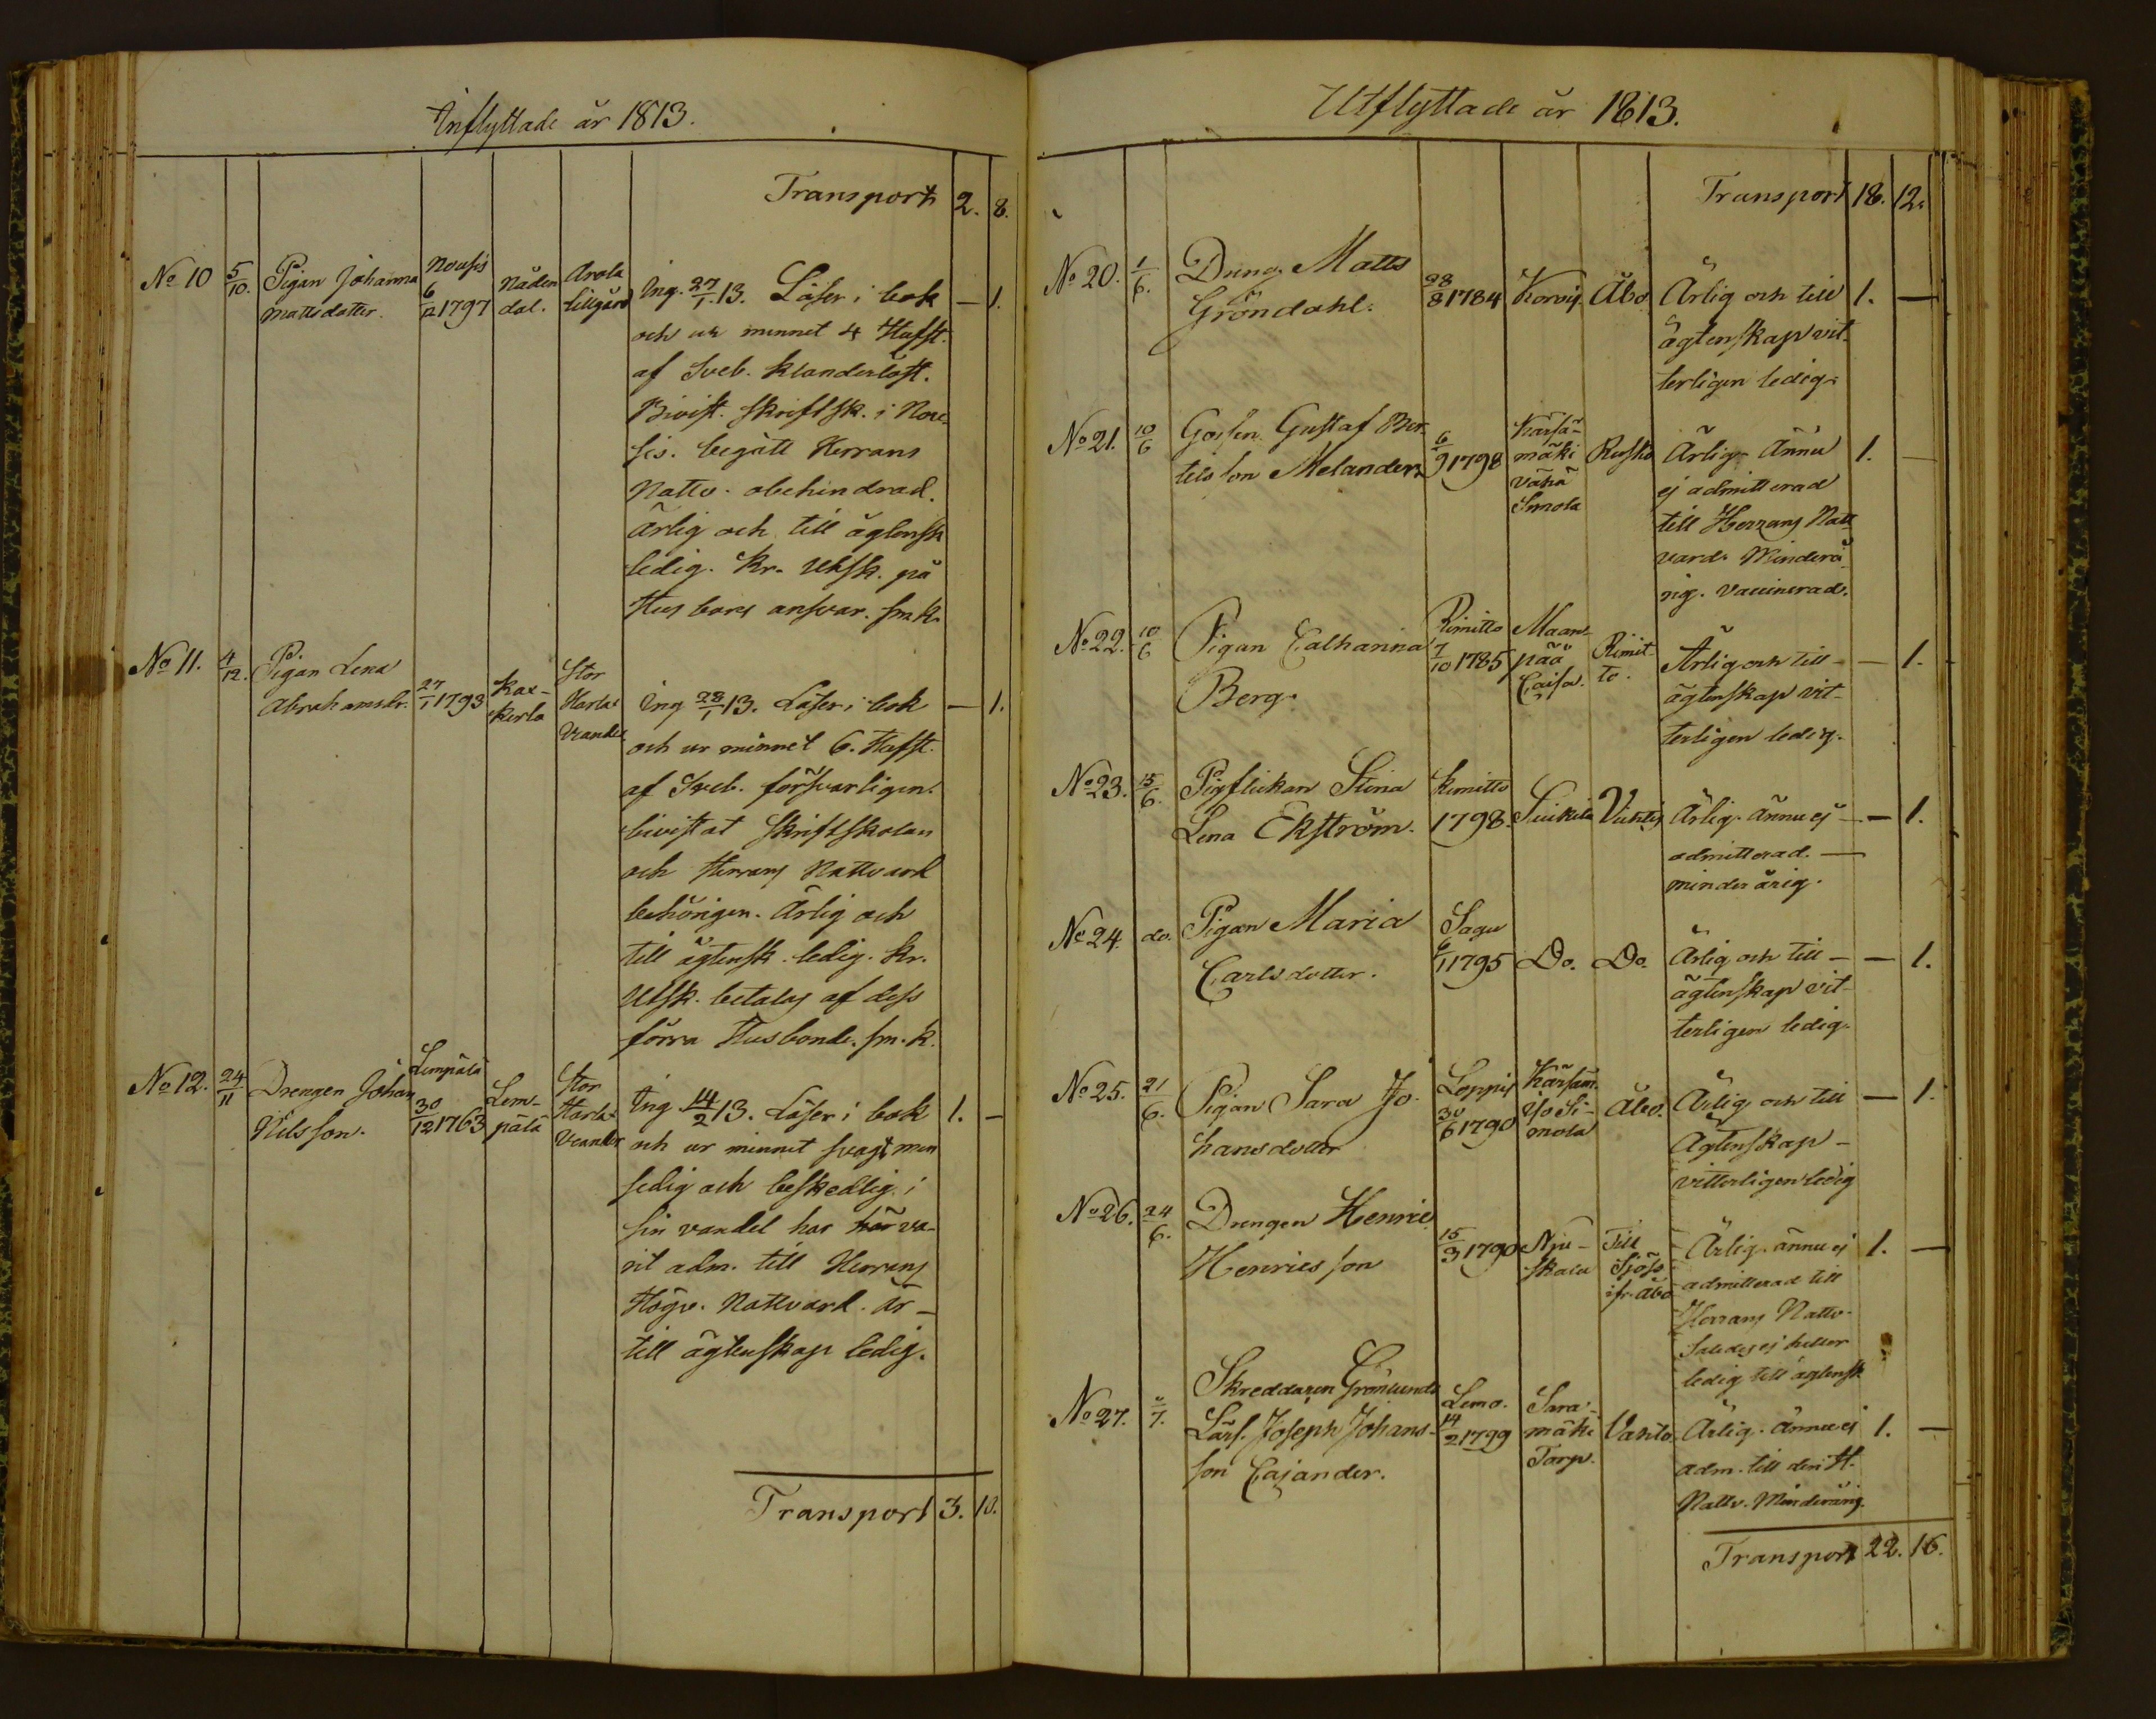 Inflyttade år 1813.
Transport 2. 8.
No 10 5/10. Pigan Johanna Mattsdotter. Nousis 6/12 1797 Nåden dal. Arola lillgård Ing. 27/1. 13. Läser i bok — 1.
och ur minnet 4 Hufst.
af Sveb.
Bivist. skriftsk. i Nou-
sis. begått Herrans
Nattv. obehindrad.
Ärlig och till ägtensk
ledig. Kr. Utsk. på
Husbons ansvar. sm.k.
No 11. 4/12. Pigan Lena Abrahamsdr. 27/1 1793 Kax- kerta Stor Harla Ing 28/1 13. Läser i bok — 1.
och ur minnet 6. Hufst.
af Sveb. försvarligen.
bivistat Skriftskolan
och Herrans Nattvard
behörigen. Ärlig och
till ägtensk. ledig. Kr.
Utsk. betalas af dess
förra Husbonde. sm. k.
No 12. 24/11 Drengen Johan Nilsson. Lempälä 30/12 1763 Lem- pälä Stor Harla Ing 14/2 13. Läser i bok 1. —
och ur minnet svagt men
sedig och beskedlig i
sin vandel har här va-
rit adm. till Herrans
Högv. Nattvard. Är —
till ägtenskap ledig.
Transport 3. 10.
Utflyttade år 1813.
Transport 18. 12.
No 20. 1/6. Dreng. Matts Gröndahl. 28/8 1784 Korois Åbo Ärlig och till 1. —
ägtenskap vit-
terligen ledig.
No 21. 10/6 Gossen Gustaf Ber-
tilsson Melander. 6/9 1798 Kärsä- mäki Vähä Simola Rusko Ärlig. Ännu 1. —
ej admitterad
till Herrans Natt-
vard. Minderå-
rig. Vaccinerad.
No 22. 10/6 Pigan Catharina Berg. Rimitto 7/10 1785 Maans- pää Caisa. Rimit- to. Ärlig och till — — 1.
ägtenskap vit-
terligen ledig.
No 23. 15/6. Pigflickan Stina
Lena Ekström. Kimitto 1798. Suikila Vichtis Ärlig. ännu ej — — 1.
admitterad. —
minderårig.
No 24. do. Pigan Maria
Carlsdotter. Sagu 6/1 1795 Do. Do. Ärlig och till — — 1.
ägtenskap vit-
terligen ledig.
No 25. 21/6. Pigan Sara Jo-
hansdotter Loppis 30/6 1790 Kärsäm. Iso Si- mola Åbo. Ärlig och till — 1.
Ägtenskap —
vitterligen ledig
No 26. 24/6. Drengen Henric
Henricsson 15/3 1790 Nju- skala Till Sjöss ifr. Åbo Ärlig. ännu ej 1. —
admitterad till
Herrans Nattv.
Saledes ej heller
ledig till ägtensk
No 27. "/7. Skreddaren Grönlunds
Lärl. Joseph Johans-
son Cajander. Lemo. 14/2 1799 Sara- mäki Torp. Vahto. Ärlig. Ännu ej 1. —
adm. till den H.
Nattv. Minderårig.
Transport 22. 16.